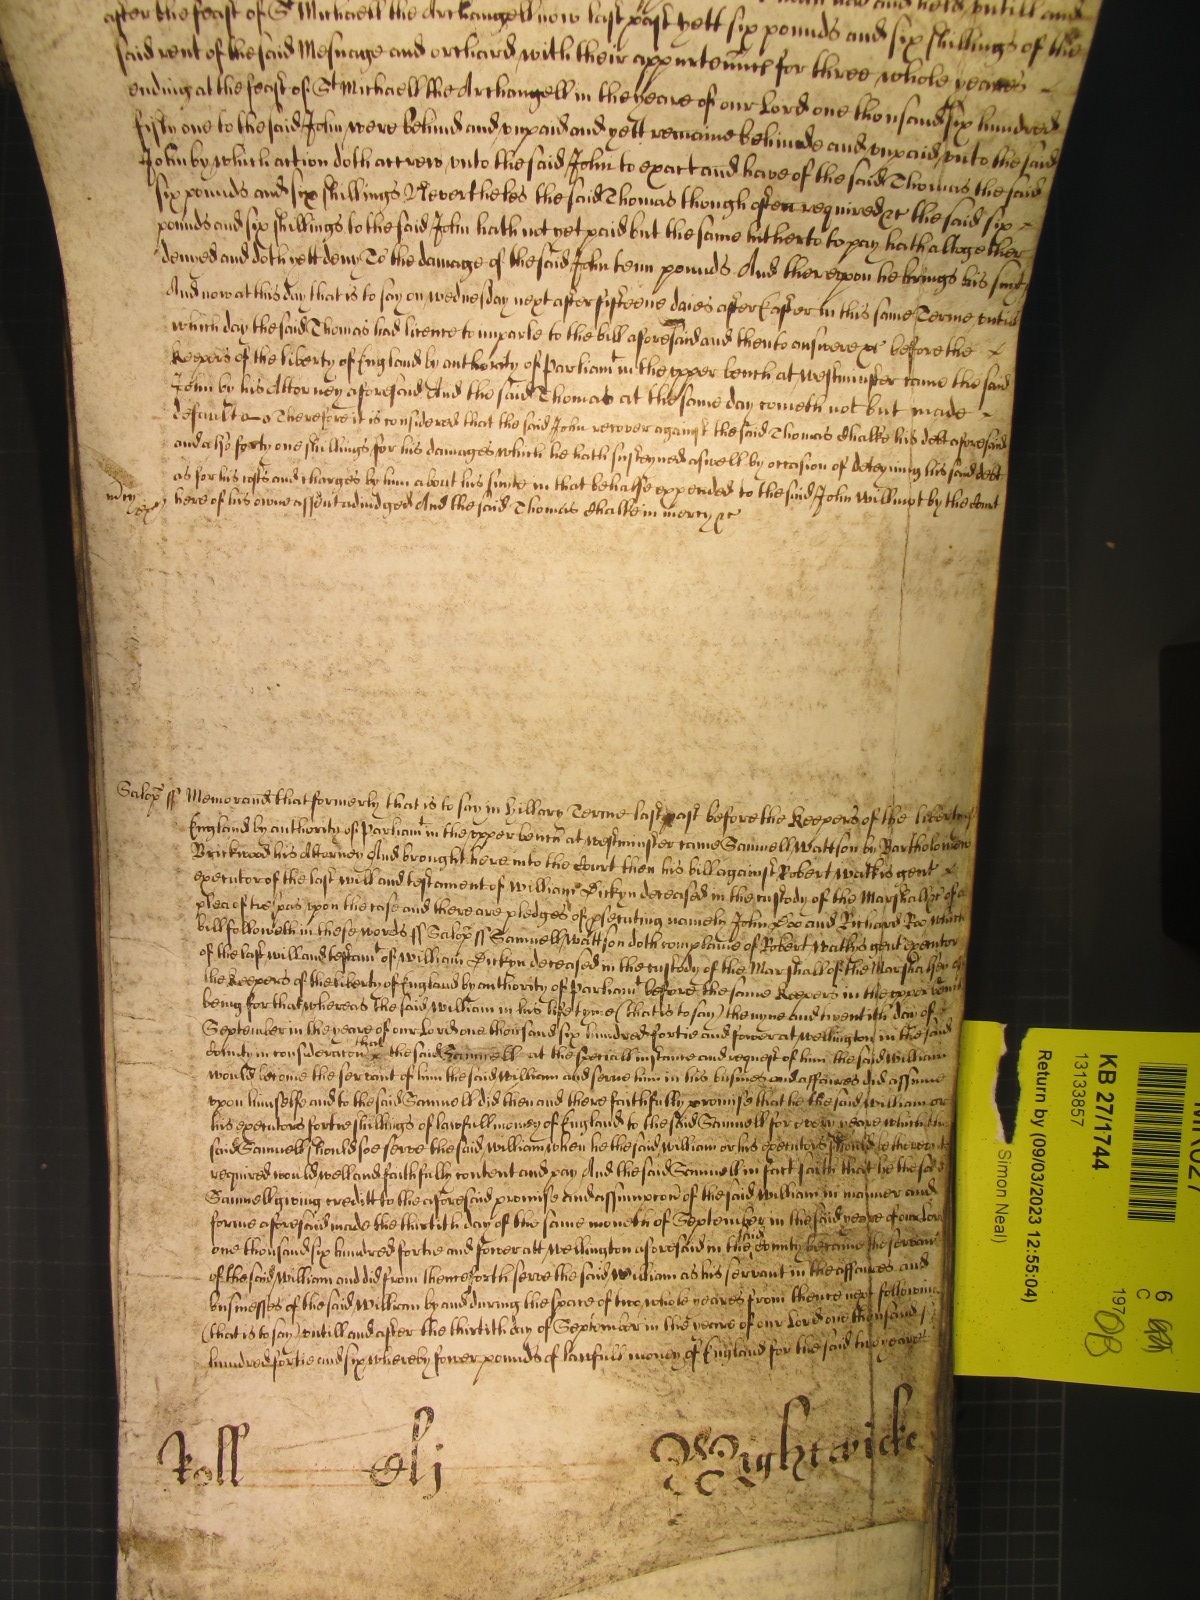 after the feast of St Michaell the Archangell now last past yett six pounds and six shillings of the
said rent of the said Mesuage and orchard with their appurtenncs for three whole yeares
ending at the feast of St Michaell the Archangell in the yeare of our Lord one thousand six hundred
fifty one to the said John were behind and unpaid and yett remaine behinde and unpaid unto the said
John by which action doth accrew unto the said John to exact and have of the said Thomas the said
six pounds and six shillings Neverthelес the said Thomas though often required &c the said six
pounds and six shillings to the said John hath not yet paid but the same hitherto to pay hath altogether
denied and doth yett deny To the damage of the said John tenn pounds And thereupon he brings his suit
And now at this day that is to say on wednesday next after fifteene daies after Easter in this same Terme untill
which day the said Thomas had licence to imparle to the bill aforesaid and then to answere &c before the
Keepers of the liberty of England by authority of Parliamt in the upper bench at Westminster came the said
John by his Attorney aforesaid And the said Thomas at the same day cometh not but made
default Therefore it is considered that the said John recover against the said Thomas Chalke his debt aforesaid
and also forty one shillings for his damages which he hath susteyned aswell by occasion of deteyning his said debt
as for his costs and charges by him about his suite in that behalfe expended to the said John Willmot by the Court
mercy
here of his owne assent adiudged And the said Thomas Chalke in mercy &c
Salop ss Memorand that formerly that is to say in Hillary Terme last past before the Keepers of the liberty of
England by authority of Parliamt in the upper bench at Westminster came Samuell Wattson by Bartholomew
Brickwood his Attorney And brought here into the Court then his bill against Robert Watkis gent
executor of the last will and testament of William Dickyn deceased in the custody of the Marshall &c of a
plea of trespas upon the case and there are pledges of psecuting namely John Doo and Richard Roo which
bill followeth in these words ss Salop ss Samuell Wattson doth complaine of Robert Wathis gent executor
of the last will and testamt of William Dickyn deceased in the custody of the Marshall of the Marshalsey of
the Keepers of the liberty of England by authority of Parliamt before the same Keepers in the upper bench
being for that whereas the said William in his life tyme (that is to say) the nyne and twentith day of
September in the yeare of our Lord one thousand six hundred fortie and fower at Wellington in the said
County in consideracon that the said Samuell at the speciall instance and request of him the said William
would become the servant of him the said William and serve him in his busines and affaires did assume
upon himselfe and to the said Samuell did then and there faithfully promise that he the said William or
his executors fortie shillings of lawfull money of England to the said Samuell for every yeare which the
said Samuell should soe serve the said William when he the said William or his executors should be thereunto
required would well and faithfully content and pay And the said Samuell in fact saith that he the said
Samuell giving creditt to the aforesaid promise and assumpcon of the said William in manner and
forme aforesaid made the thirtith day of the same moneth of September in the said yeare of our Lord
one thousand six hundred fortie and fower att Wellington aforesaid in the said County became the servant
of the said William and did from thenceforth serve the said William as his servant in the affaires and
businesses of the said William by and during the space of two whole yeares from thence next following
(that is to say) untill and after the thirtith day of September in the yeare of our Lord one thousand six
hundred fortie and six whereby fower pounds of lawfull money of England for the said two yeares
Roll Clj Wightwicke
KB 27/1744
13133857
Return by (09/03/2023 12:55:04)
Simon Neal)
6
C
197